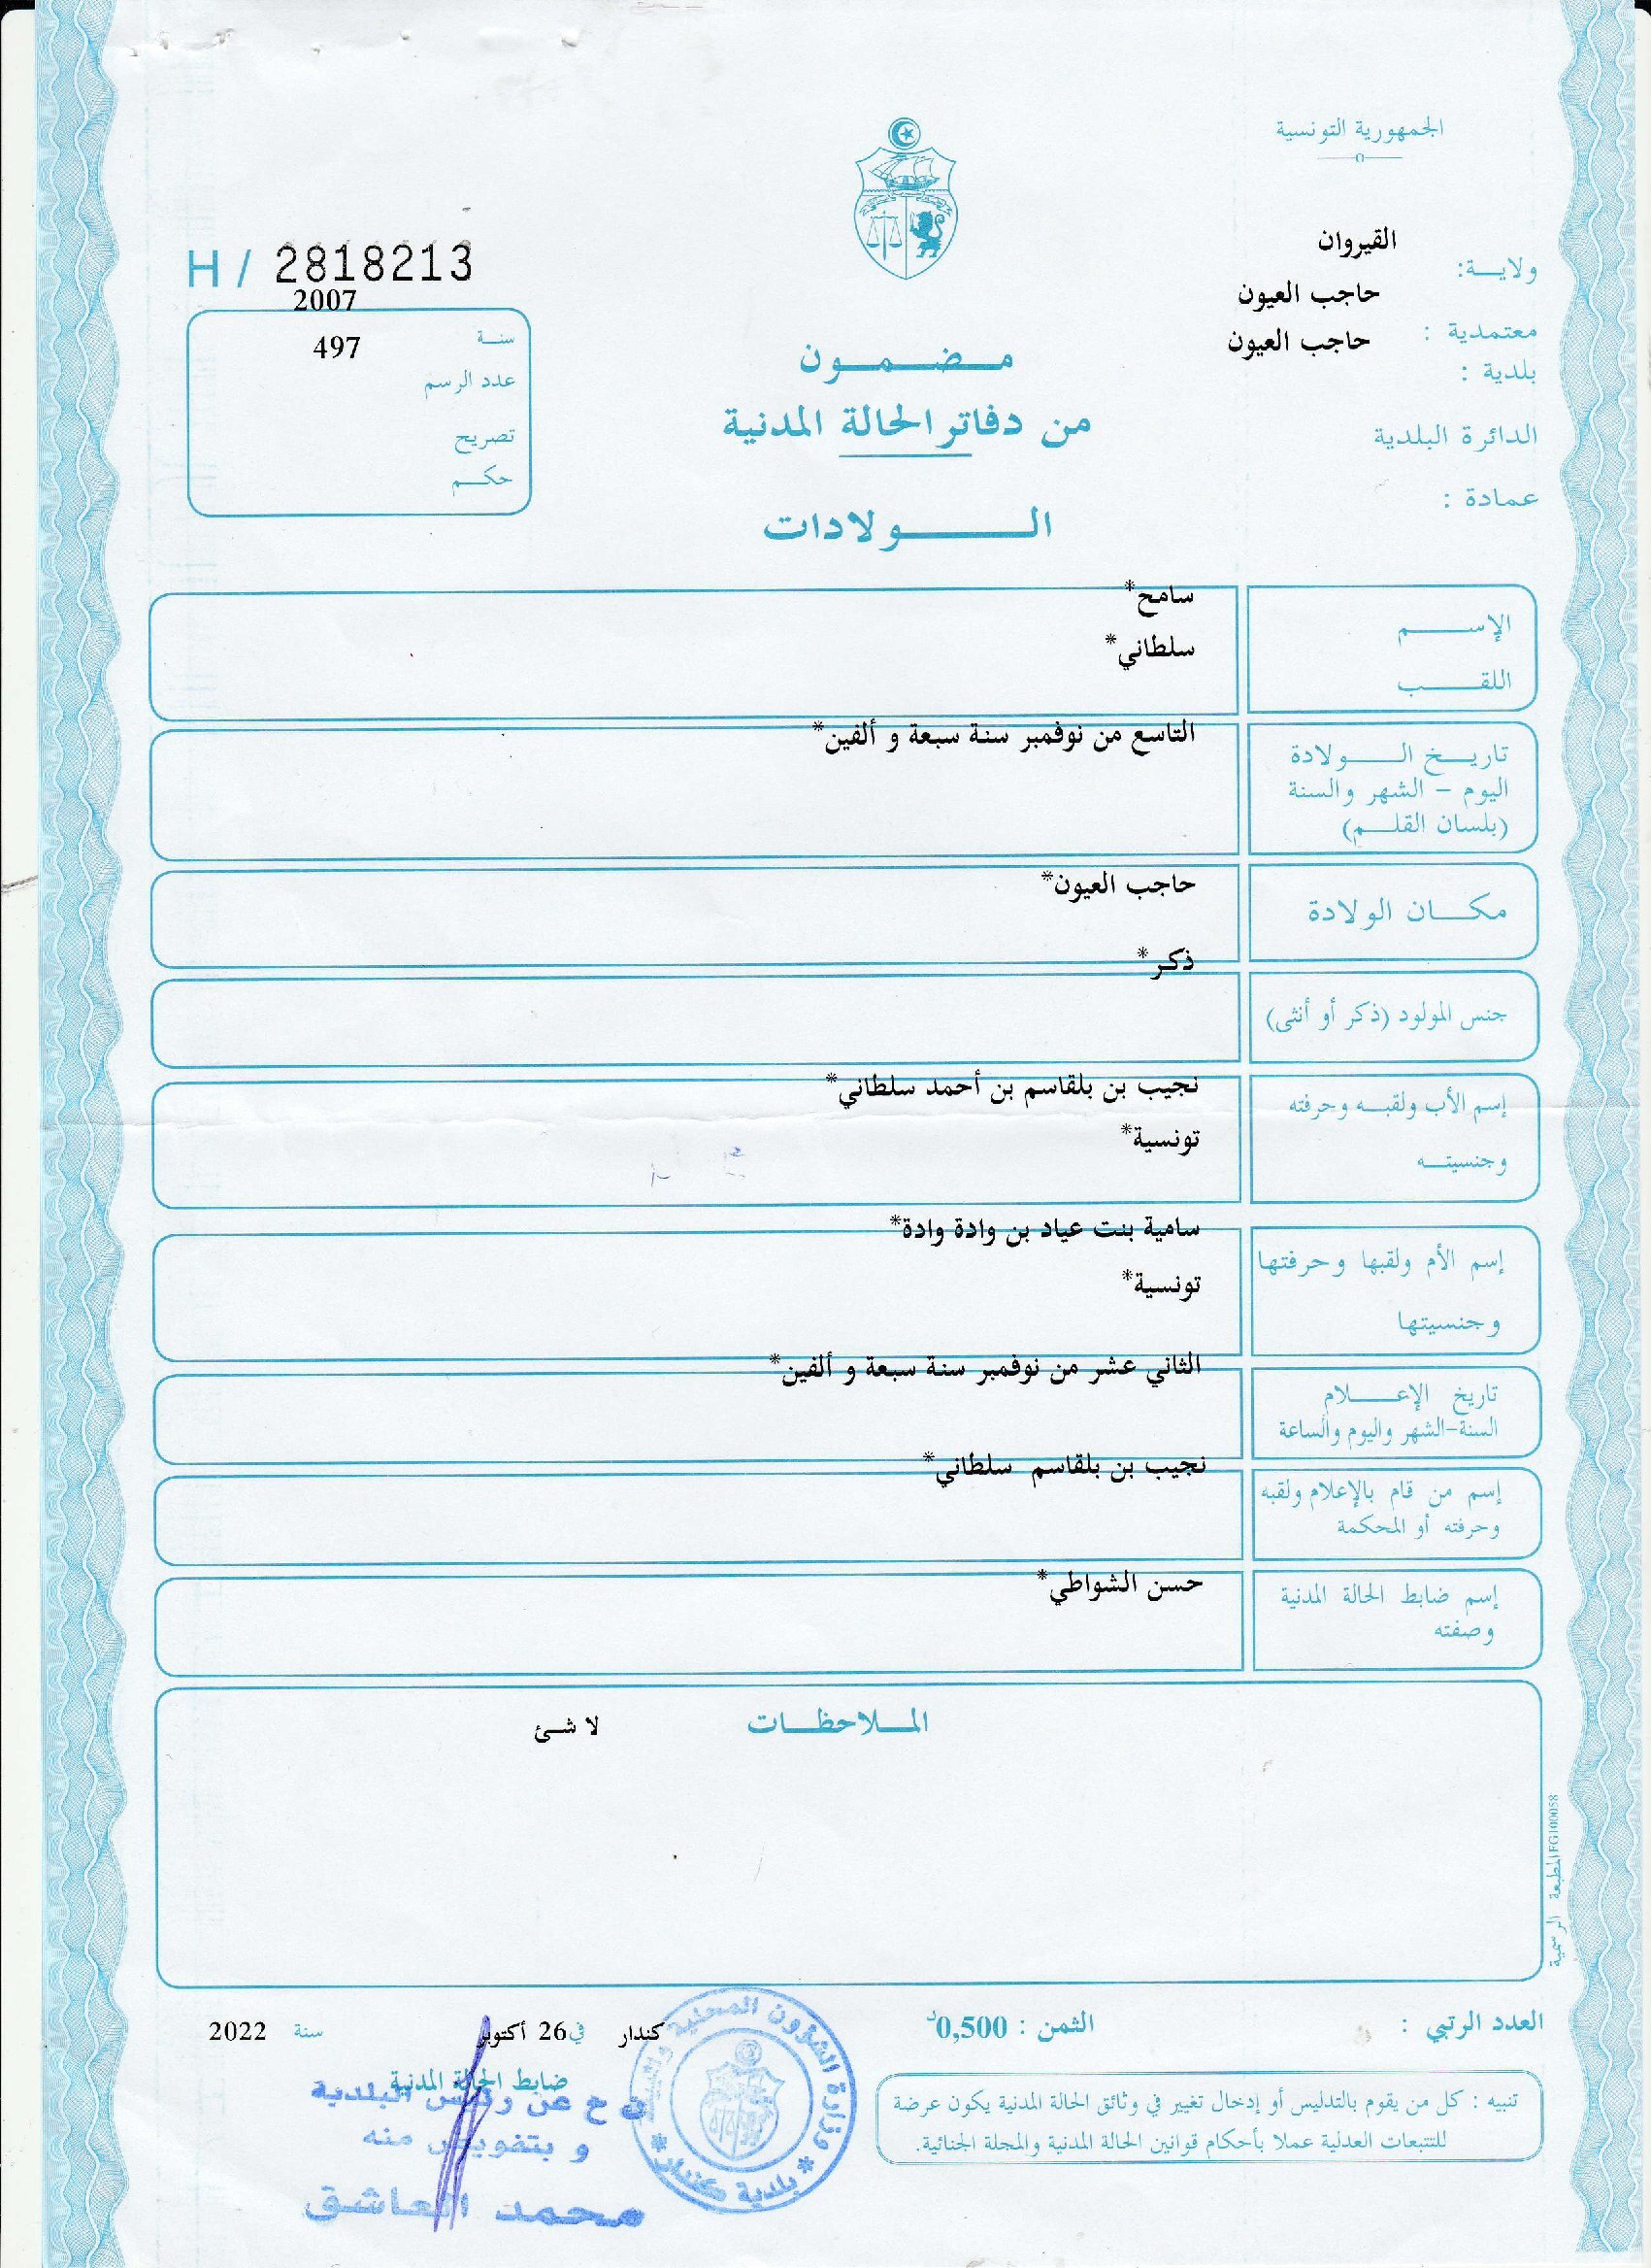 الجمهورية التونسية
ولايـــة: القيروان
معتمدية : حاجب العيون
بلدية : حاجب العيون
الدائرة البلدية
عمادة :
H / 2818213
2007
سنــة
497
عدد الرسم
تصريح
حكـــم
مـــضـــمـــون
من دفاتر الحالة المدنية
الـــــولادات
الإســـــم
سامح*
اللقـــــب
سلطاني*
تاريـــخ الـــــولادة
اليوم – الشهر والسنة
(بلسان القلـــم)
التاسع من نوفمبر سنة سبعة و ألفين*
مكـــان الولادة
حاجب العيون*
جنس المولود (ذكر أو أنثى)
ذكر*
إسم الأب ولقبــه وحرفته
نجيب بن بلقاسم بن أحمد سلطاني*
وجنسيتــه
تونسية*
إسم الأم ولقبها وحرفتها
سامية بنت عياد بن وادة وادة*
وجنسيتها
تونسية*
تاريخ الإعـــــلام
السنة-الشهر واليوم والساعة
الثاني عشر من نوفمبر سنة سبعة و ألفين*
إسم من قام بالإعلام ولقبه
وحرفته أو المحكمة
نجيب بن بلقاسم سلطاني*
إسم ضابط الحالة المدنية
وصفته
حسن الشواطي*
المـــلاحظـــات
لا شئ
المطبعة الرسمية FG100058
العدد الرتبي :
الثمن : 0,500د
كندار في 26 أكتوبر سنة 2022
ضابط الحالة المدنية
تنبيه : كل من يقوم بالتدليس أو إدخال تغيير في وثائق الحالة المدنية يكون عرضة
للتتبعات العدلية عملا بأحكام قوانين الحالة المدنية والمجلة الجنائية.
عن رئيس البلدية
و بتفويض منه
محمد العاشق
وزارة الشؤون المحلية
بلدية كندار